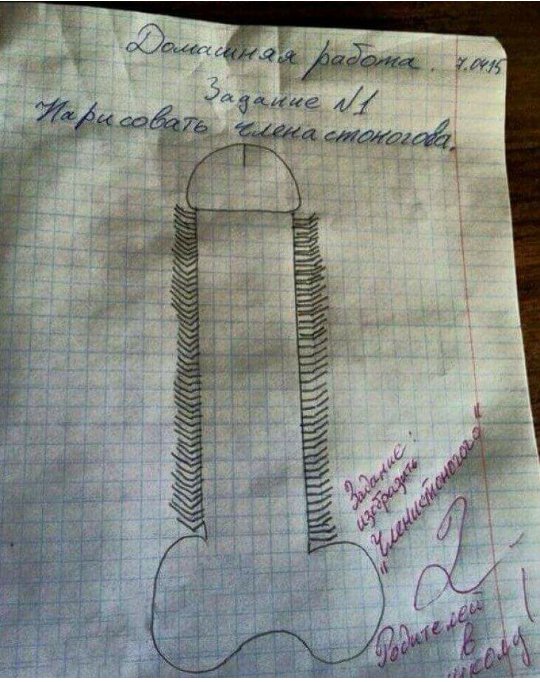 Домашняя работа. 7.04.15
Задание №1
Нарисовать члена стоногова.
Задание:
изобразить
"Членистоногого"
2
Родителей
в
школу!